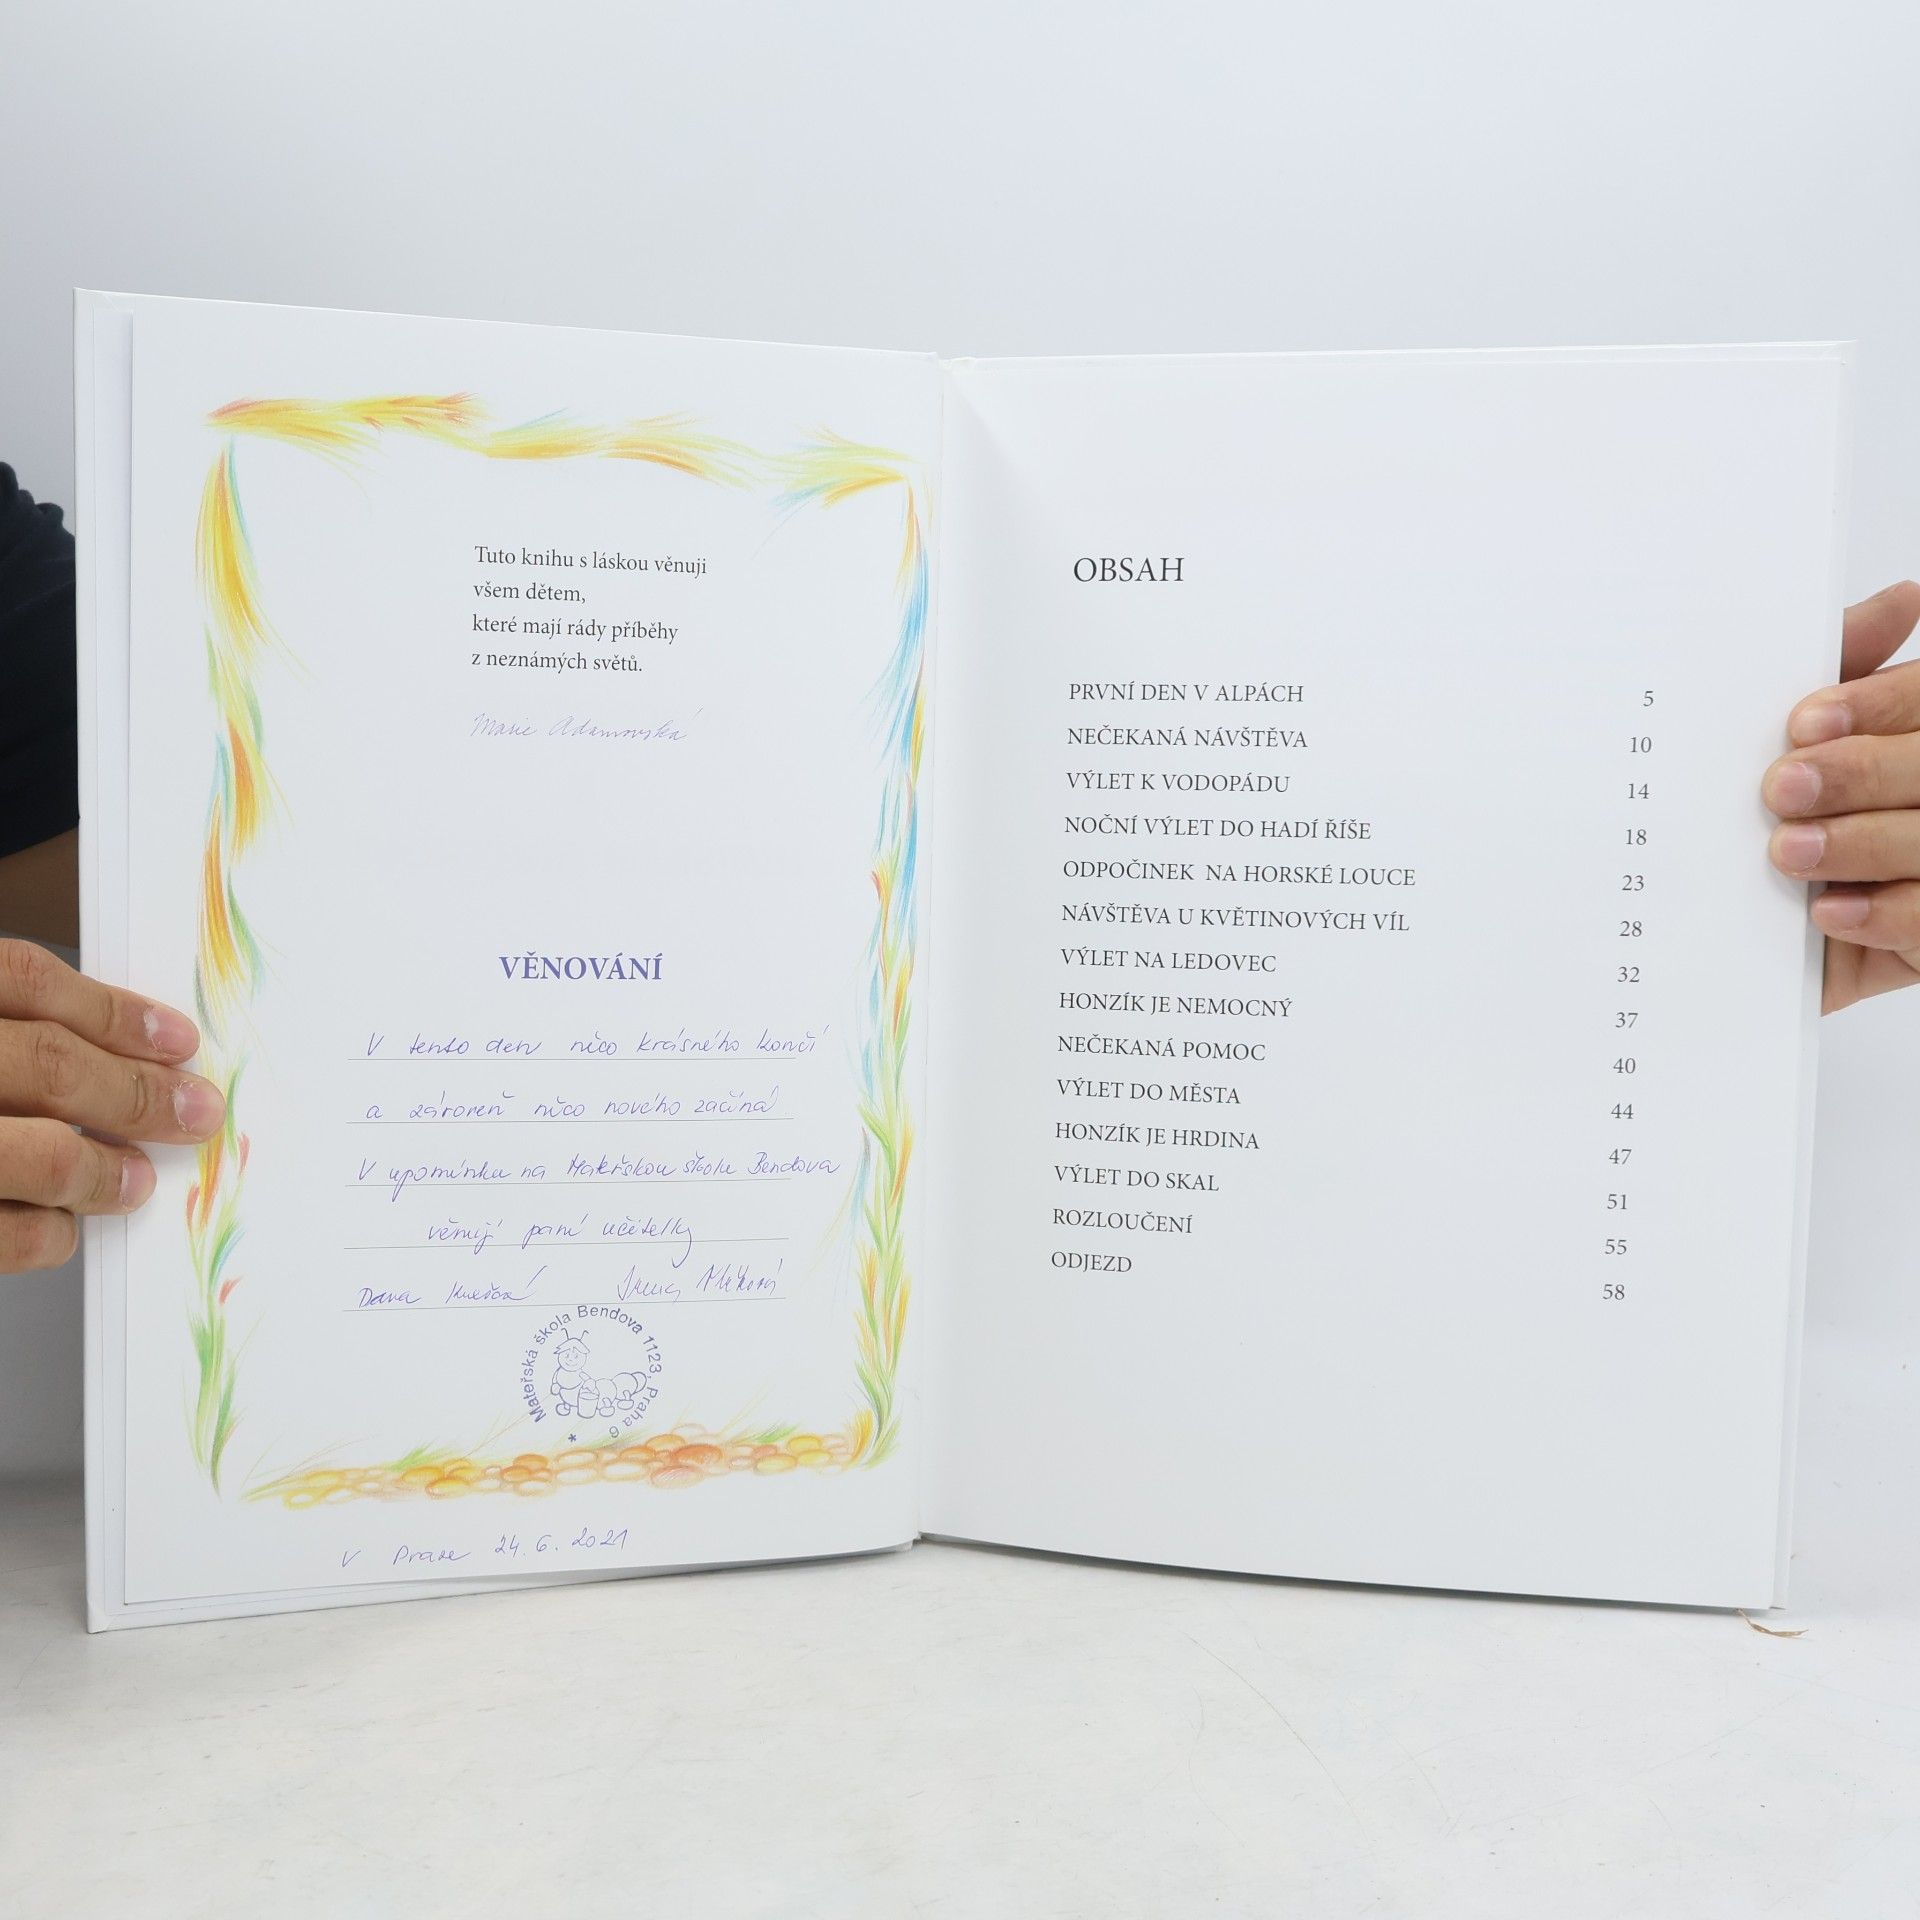 Tuto knihu s láskou věnuji
všem dětem,
které mají rády příběhy
z neznámých světů.
Marie Adamovská
VĚNOVÁNÍ
V tento den něco krásného končí
a zároveň něco nového začíná
V upomínku na Mateřskou školu Bendova
věnují paní učitelky
Dana
Mateřská škola Bendova 1123, Praha 6 *
V Praze 24.6.2021
OBSAH
PRVNÍ DEN V ALPÁCH 5
NEČEKANÁ NÁVŠTĚVA 10
VÝLET K VODOPÁDU 14
NOČNÍ VÝLET DO HADÍ ŘÍŠE 18
ODPOČINEK NA HORSKÉ LOUCE 23
NÁVŠTĚVA U KVĚTINOVÝCH VÍL 28
VÝLET NA LEDOVEC 32
HONZÍK JE NEMOCNÝ 37
NEČEKANÁ POMOC 40
VÝLET DO MĚSTA 44
HONZÍK JE HRDINA 47
VÝLET DO SKAL 51
ROZLOUČENÍ 55
ODJEZD 58